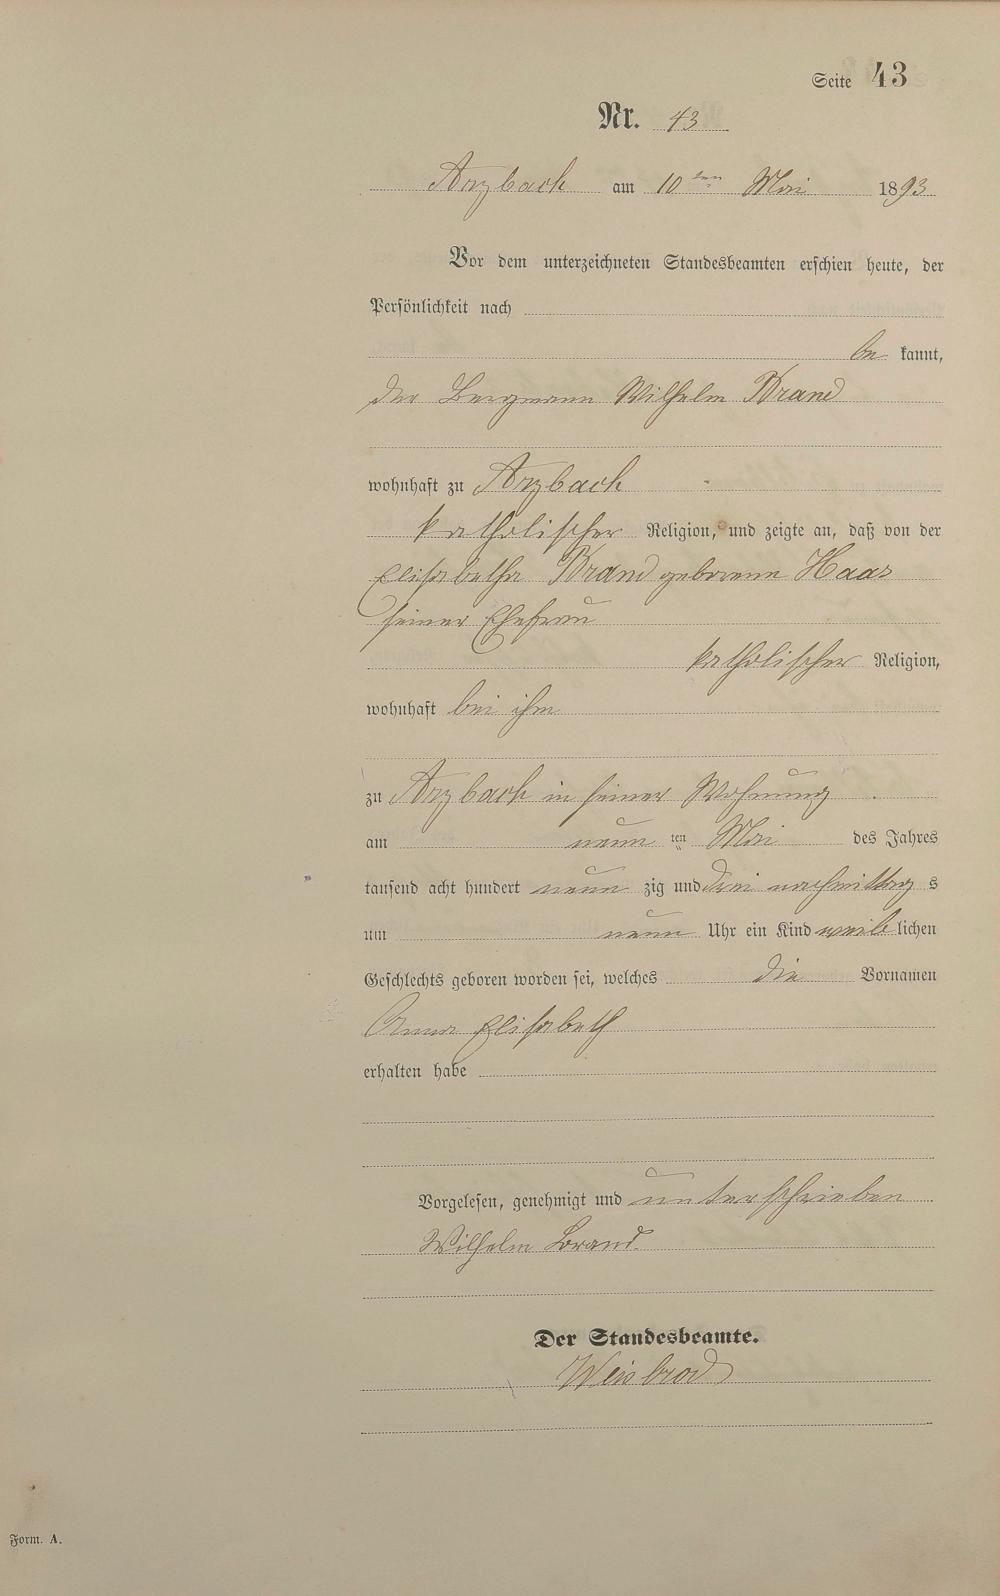 Seite 43
Nr. 43
Arzbach am 10ten Mai 1893
Vor dem unterzeichneten Standesbeamten erschien heute, der
Persönlichkeit nach
bekannt,
der Bergmann Wilhelm Brand
wohnhaft zu Arzbach
katholischer Religion, und zeigte an, daß von der
Elisabetha Brand geborene Haas
seiner Ehefrau
katholischer Religion,
wohnhaft bei ihm
zu Arzbach in seiner Wohnung
am neun ten Mai des Jahres
tausend acht hundert neunzig und drei nachmittags
um neun Uhr ein Kind weiblichen
Geschlechts geboren worden sei, welches die Vornamen
Anna Elisabeth
erhalten habe
Vorgelesen, genehmigt und unterschrieben
Wilhelm Brand.
Der Standesbeamte.
Weisbrod
Form. A.